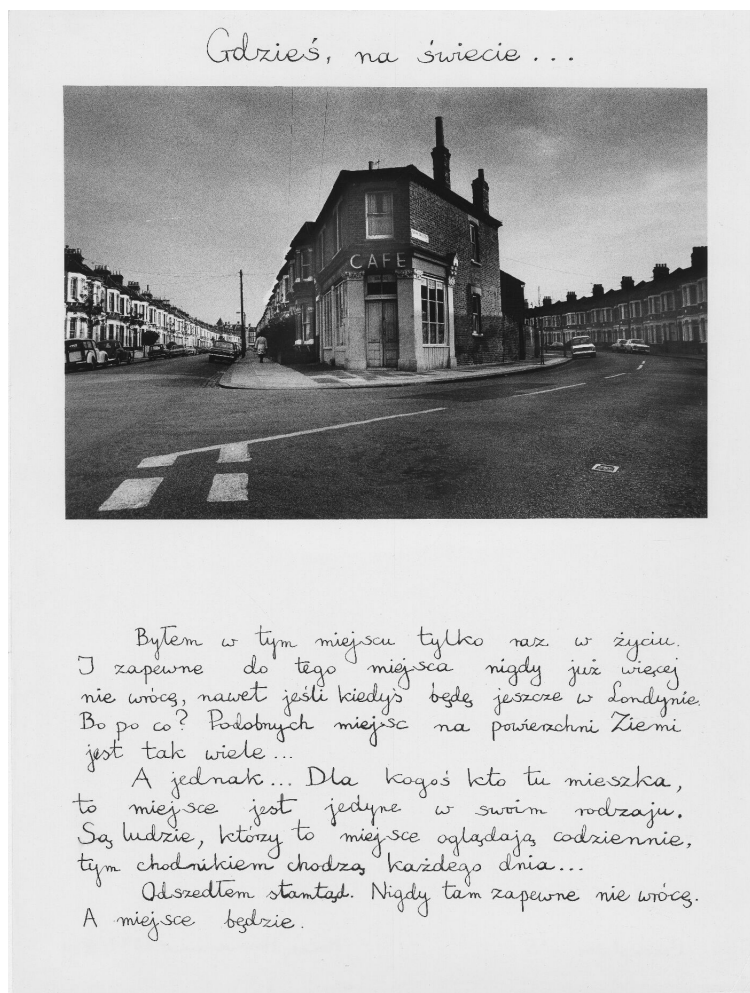 Gdzieś, na świecie...
CAFE
Byłem w tym miejscu tylko raz w życiu.
I zapewne do tego miejsca nigdy już więcej
nie wrócę, nawet jeśli kiedyś będę jeszcze w Londynie.
Bo po co? Podobnych miejsc na powierzchni Ziemi
jest tak wiele...
A jednak... Dla kogoś kto tu mieszka,
to miejsce jest jedyne w swoim rodzaju.
Są ludzie, którzy to miejsce oglądają codziennie,
tym chodnikiem chodzą każdego dnia...
Odszedłem stamtąd. Nigdy tam zapewne nie wrócę.
A miejsce będzie.